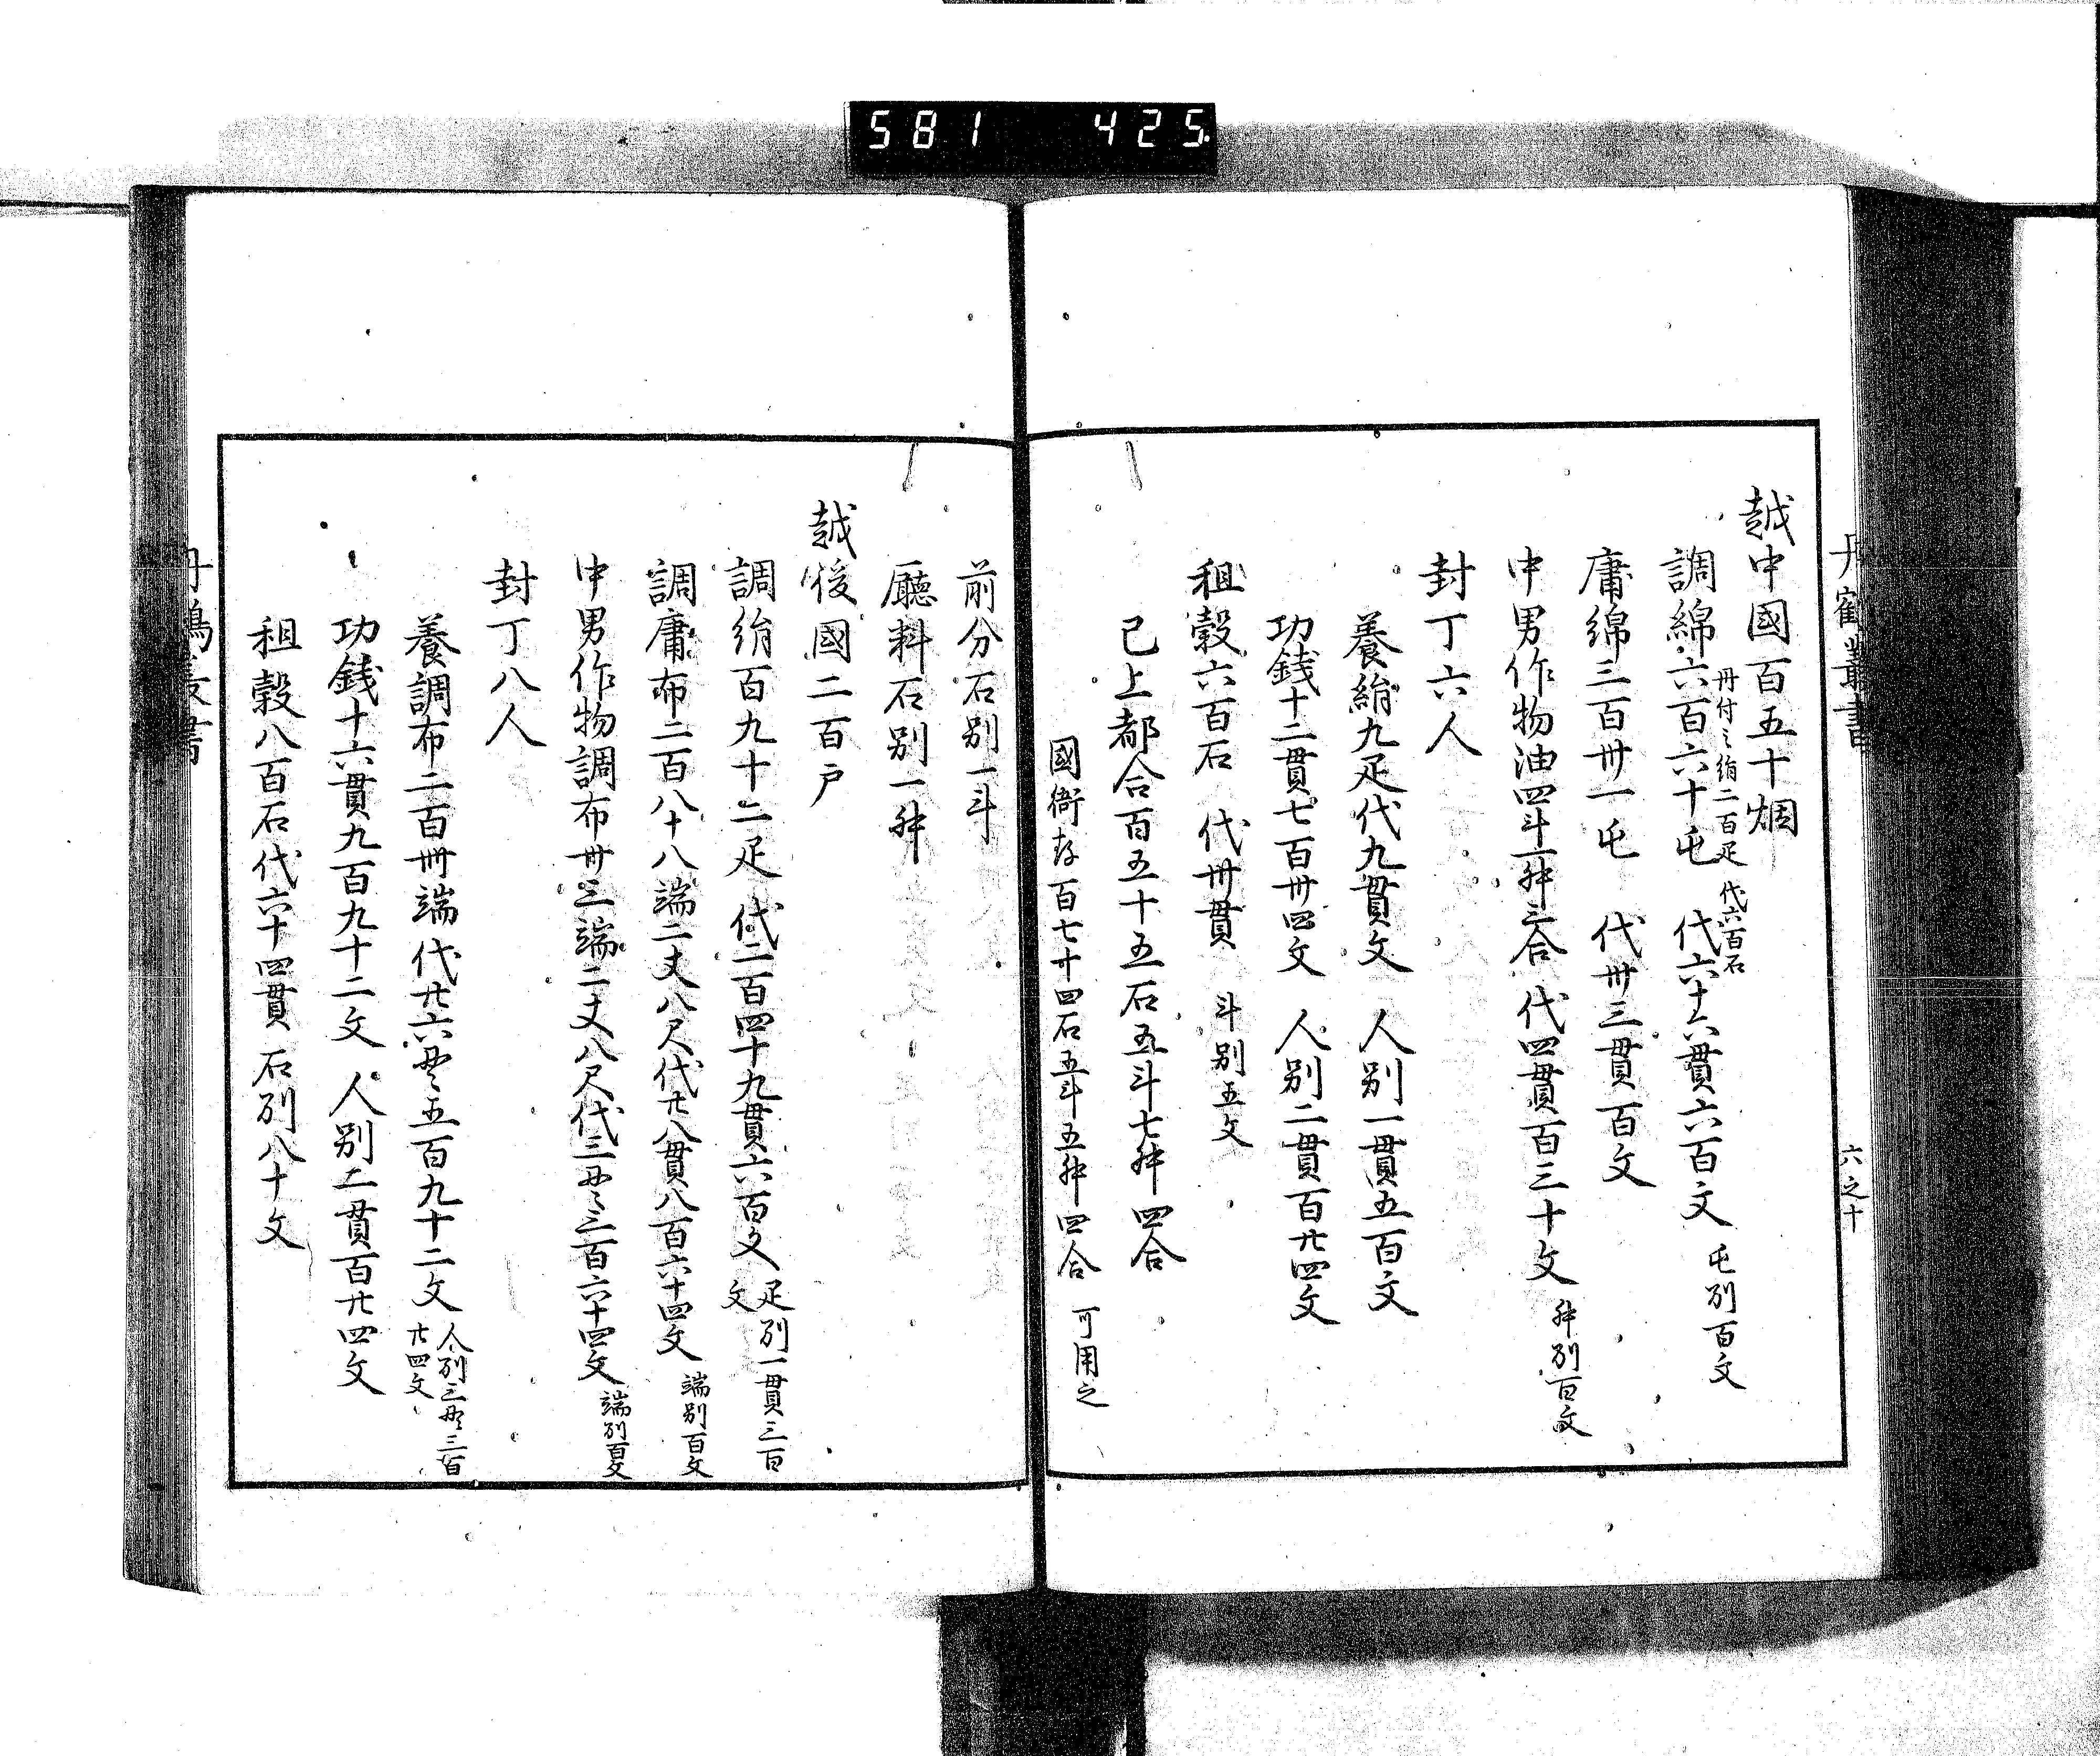 581 425
丹鶴叢書
六之十
越中國百五十烟
調綿六百六十屯 代六十六貫六百文 屯別百文
冊付之絹二百疋 代六百石
庸綿三百卅一屯 代卅三貫百文
中男作物油四斗一舛三合 代四貫百三十文 舛別百文
封丁六人
養絹九疋代九貫文 人別一貫五百文
功錢十二貫七百卌四文 人別二貫百廿四文
租穀六百石 代卅貫 斗別五文
已上都合百五十五石五斗七舛四合
國衙存百七十四石五斗五舛四合 可用之
前分石別一斗
廳料石別一舛
越後國二百戸
調絹百九十二疋 代二百四十九貫六百文 疋別一貫三百文
調庸布二百八十八端二丈八尺代廿八貫八百六十四文 端別百文
中男作物調布卅三端二丈八尺代三貫三百六十四文 端別百文
封丁八人
養調布二百卌端代廿六貫五百九十二文 人別三貫三百廿四文
功錢十六貫九百九十二文 人別二貫百廿四文
租穀八百石代六十四貫 石別八十文
丹鶴叢書